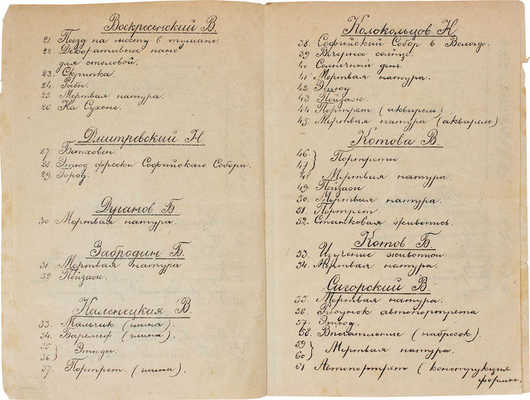 Воскресенский В.
21 Поезд на мосту в тумане
22 Декоративная пано
для столовой.
23. Скрипка.
24. Гиви.
25. Мертвая натура.
26 На Сухоне.
Дмитревский Н
27 Бетховен
28. Этюд фрески Софийского Собора.
29. Город.
Дуганов В
30 Мертвая натура.
Забродин Б.
31 Мертвая натура
32 Пейзаж.
Каленецкая В
33. Мальчик (глина)
34. Барельеф (глина).
35 } Этюды.
36
37. Портрет (глина).
Колокольцов Н
38. Софийский Собор в Вологде.
39 Вечерне солнце.
40. Солнечный день.
41. Мертвая натура.
42
43 Пейзаж.
44 Портрет (акварель)
45. Мертвая натура (акварель).
Котова В
46 } Портреты
47
48 Мертвая натура
49 Пейзаж
50. Мертвая натура.
51. Портрет
52. Станковая живопись.
Котов Б.
53. Изучение животной
54. Мертвая натура.
Сигорский В
55. Мертвая натура.
56. Рисунок автопортрета
57. Этюд.
58. Впечатление (набросок).
59 } Мертвая натура.
60
61 Автопортрет (конструкция
формы.